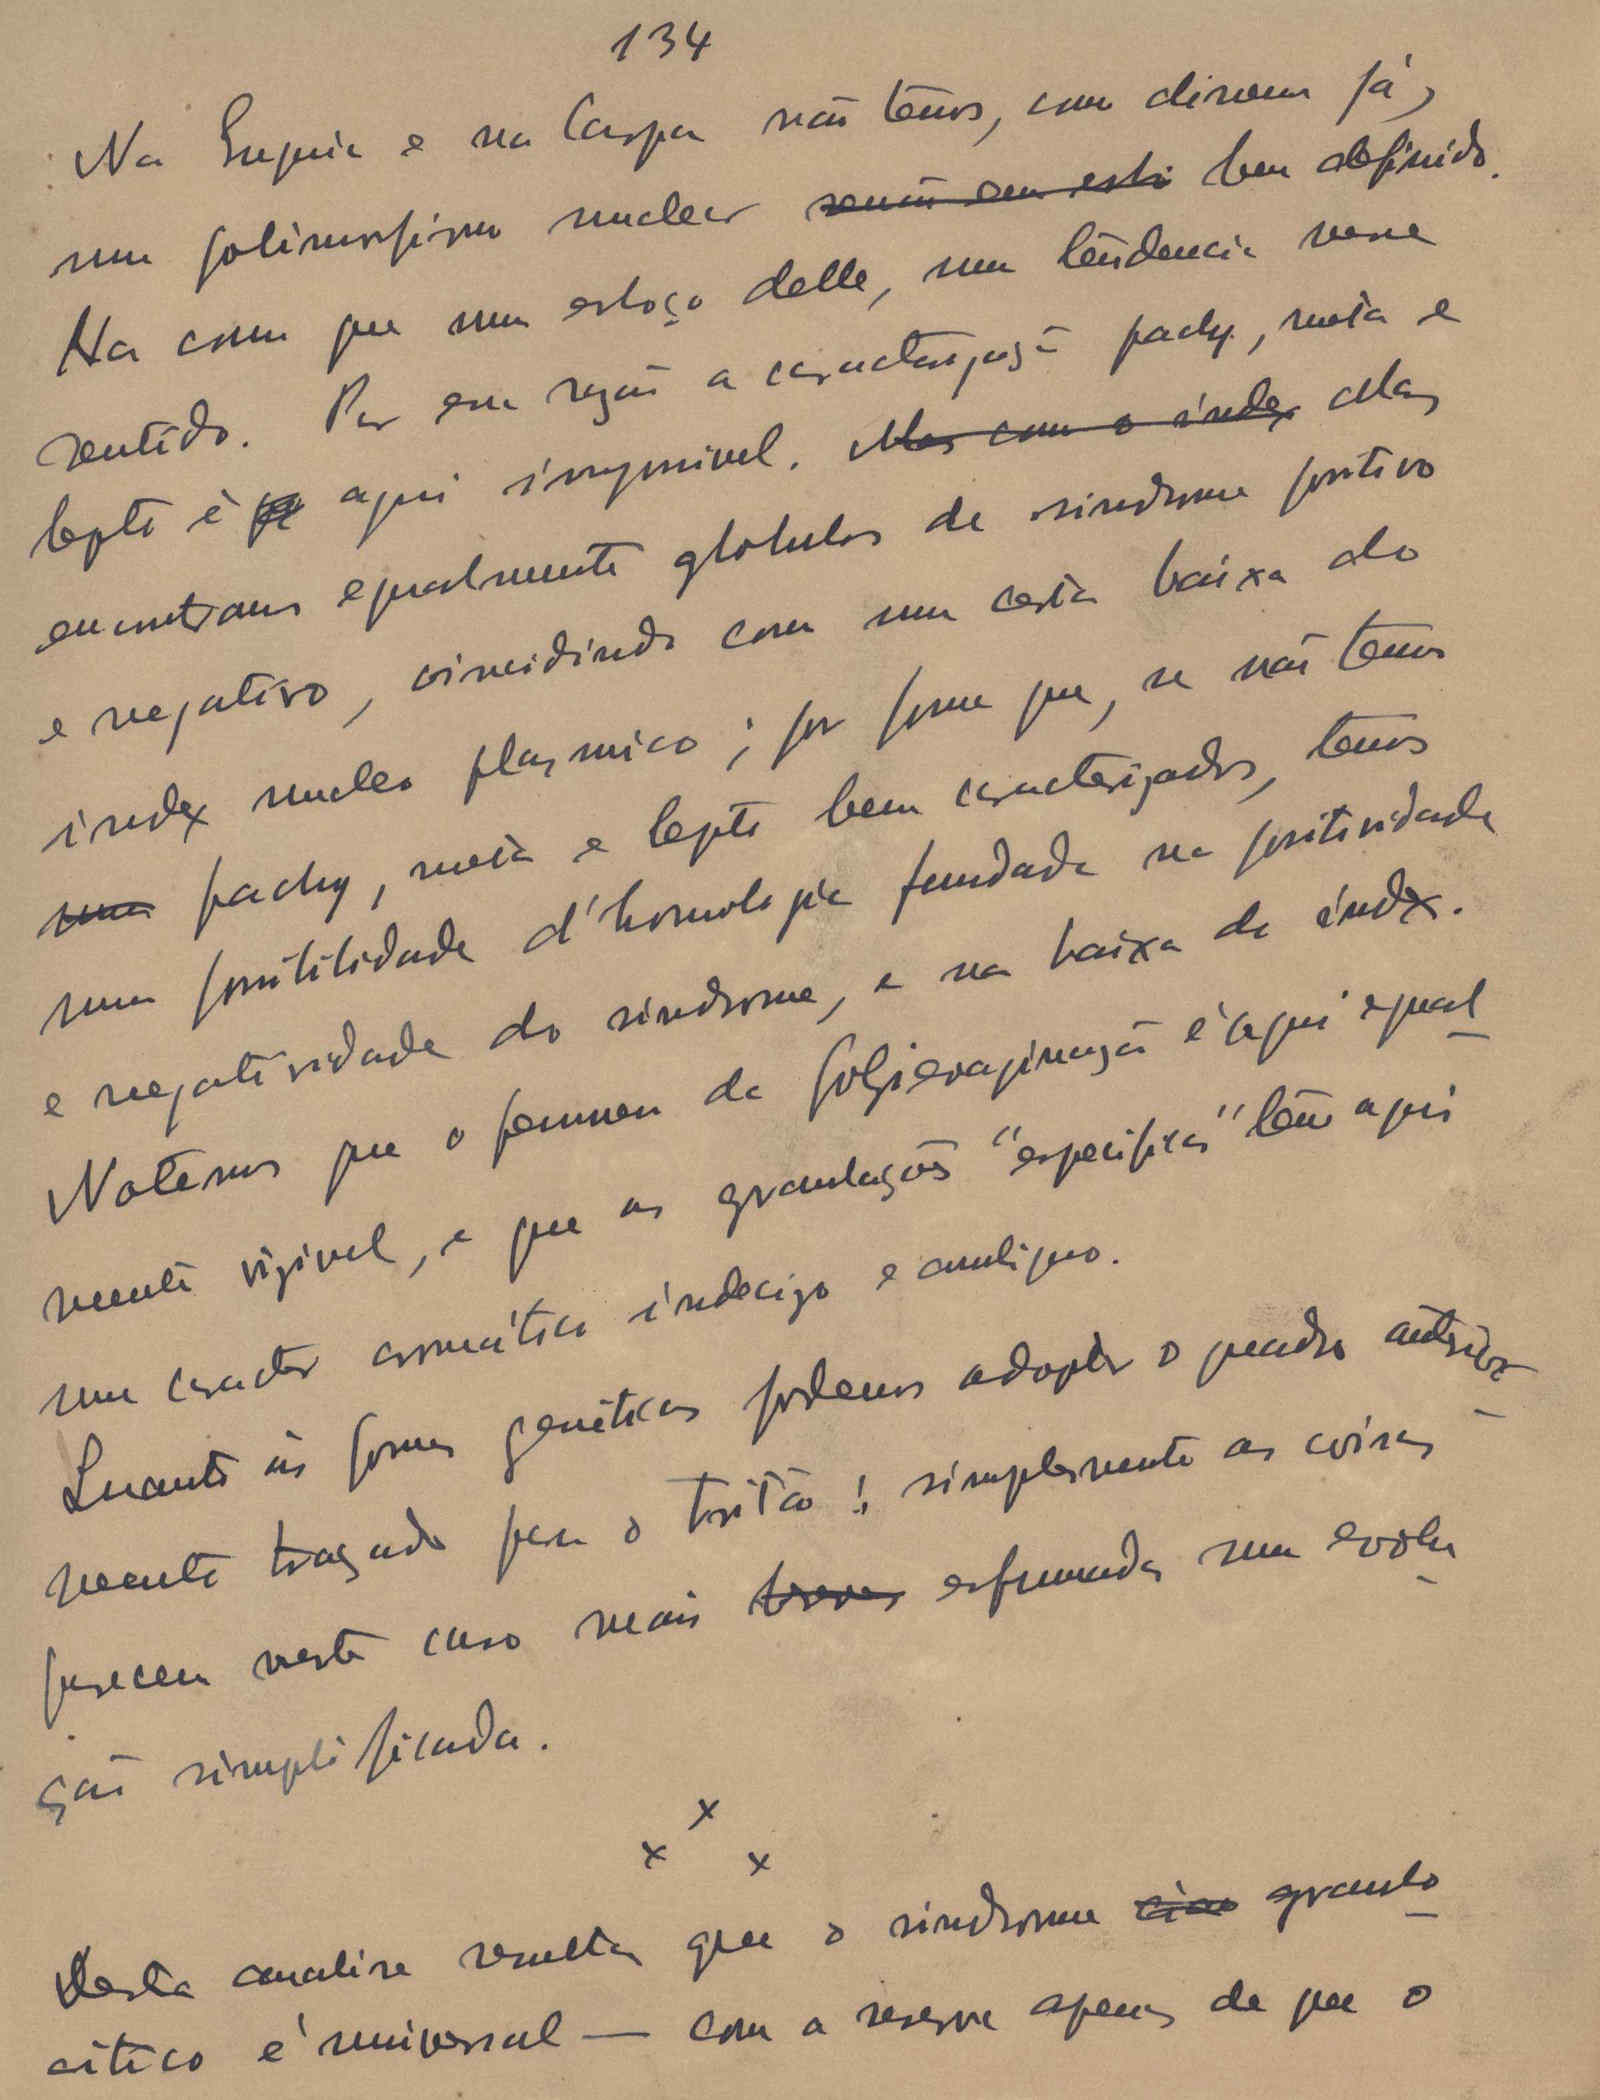 134
Na Enguia e na Carpa não temos, como dissemos já,
um polimorfismo nuclear senão em esbo bem definido.
Ha como que um esboço delle, uma tendencia nesse
sentido. Por essa razão a caracterização pachy, meta e
lepto é aqui impossivel. Mas com o index Mas
encontramos egualmente globulos de sindrome positivo
e negativo, coincidindo com uma certa baixa do
index nucleo plasmico; por forma que, se não temos
uma pachy, meta e lepto bem caracterizados, temos
uma possibilidade d'homologia fundada na positividade
e negatividade do sindrome, e na baixa do index.
Notemos que o fenomeno da polsievaginação é aqui egual-
mente vizivel, e que as granulações "especificas" têm aqui
um caracter cromático indecizo e ambiguo.
Quanto ás formas genéticas podemos adoptar o quadro anterior-
mente traçado para o tritão; simplesmente as coisas
parecem neste caso mais breves esfumadas numa evolu-
ção simplificada.
x x x
Desta analise resulta que o sindrome granulo-
citico é universal — com a reserva apenas de que o